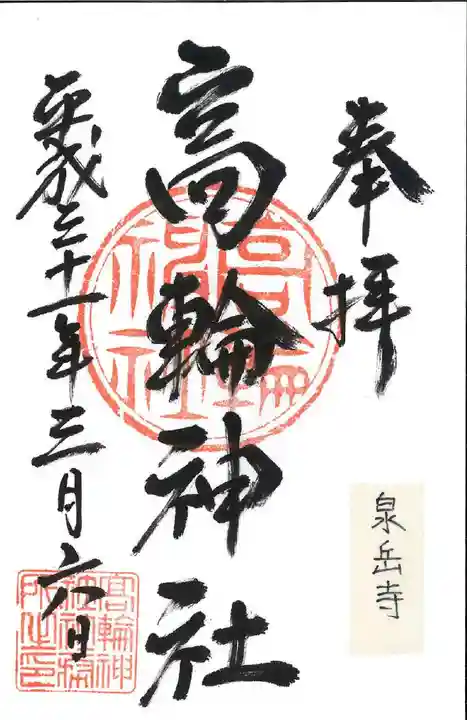 奉拝
泉岳寺
高輪神社
平成三十一年三月六日
高輪神社
高輪神
社社務
所之印